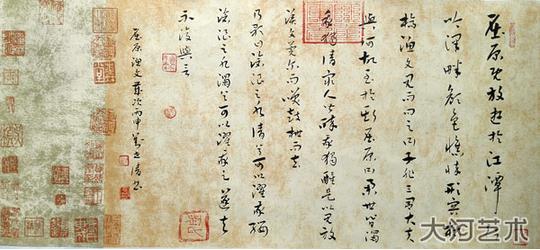 屈原既放游於江潭
吟澤畔顏色憔悴形容枯
槁漁父見而問之曰子非三閭大夫
與何故至於斯屈原曰舉世皆濁
我獨清眾人皆醉我獨醒是以見放
漁父莞爾而笑鼓枻而去
乃歌曰滄浪之水清兮可以濯我纓
滄浪之水濁兮可以濯我足遂去
不復與言
屈原漁父歲次丙申
大河艺术